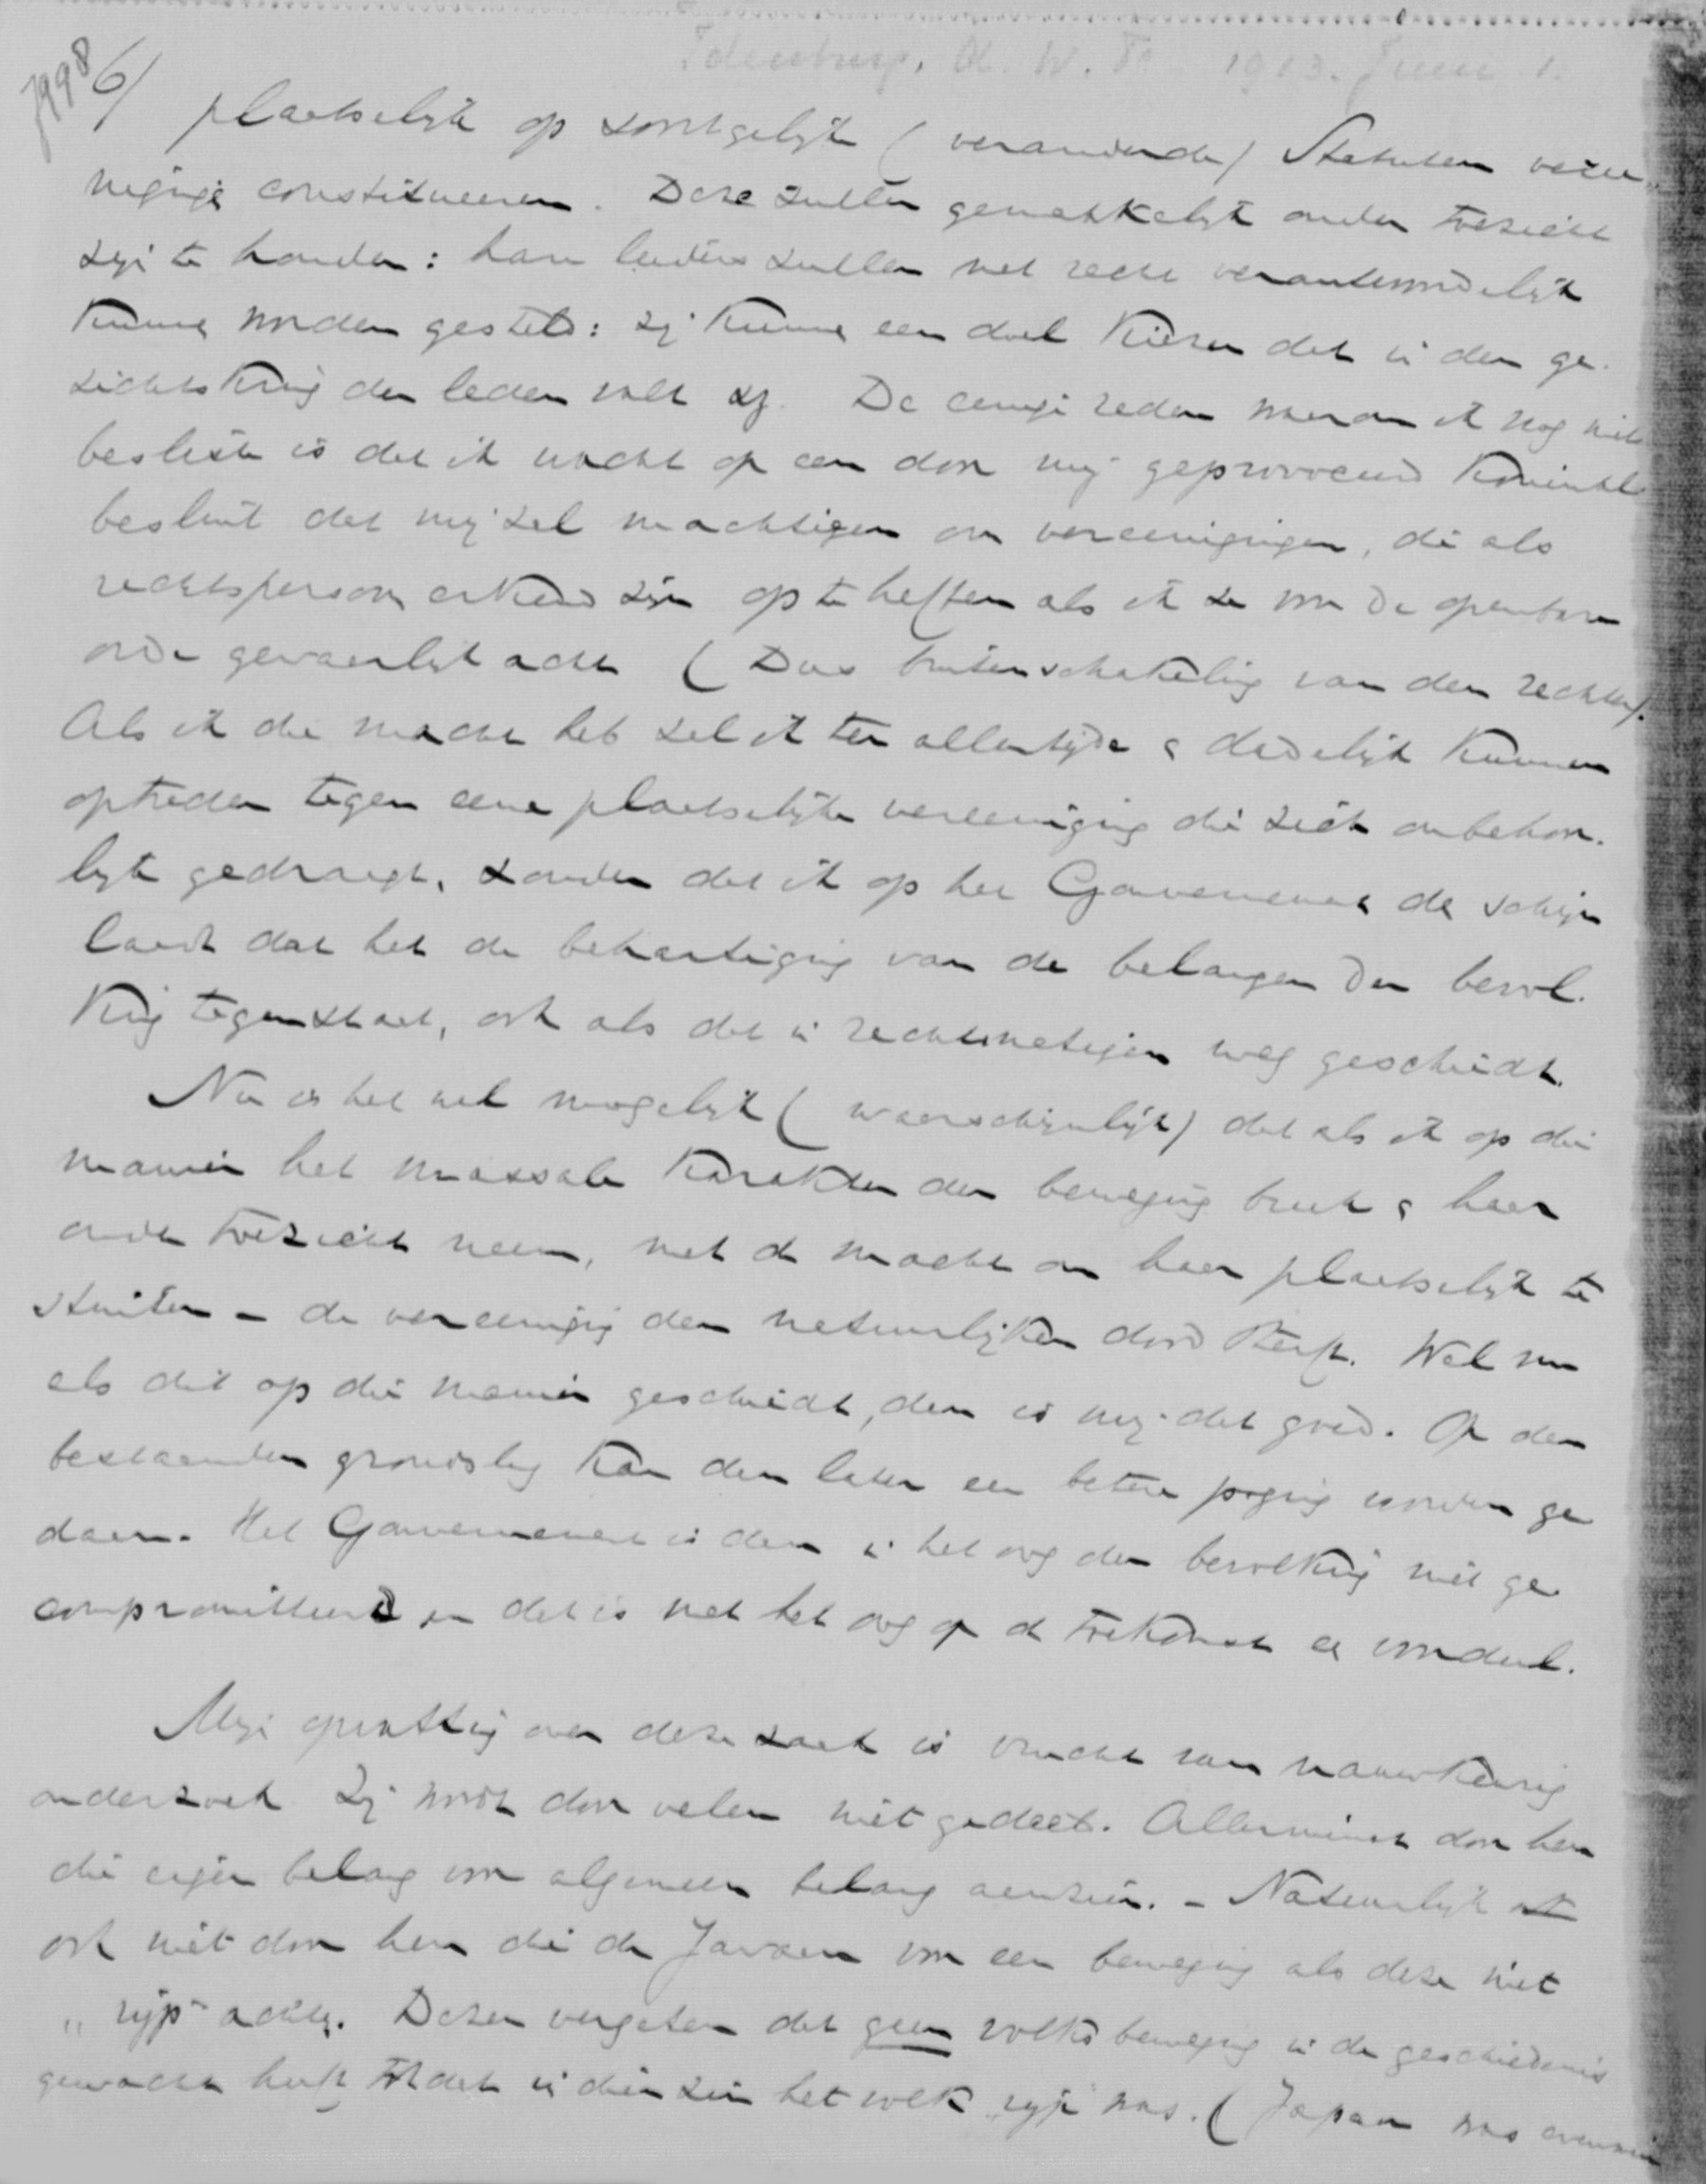 Idenburg, A. W. F. 1913. Juni 1.
7998
6/ plaatselijk op soortgelijke (veranderde) Statuten veree-
niging constitueeren. Deze zullen gemakkelijk onder toezicht
zijn te houden: hare leiders zullen met recht verantwoordelijk
kunnen worden gesteld: zij kunnen een doel kiezen dat in den ge-
zichtskring der leden valt. De eenige reden waarom ik nog niet
besliste is dat ik wacht op een door mij geprovoceerd Koninkl.
besluit dat mij zal machtigen om vereenigingen, die als
rechtspersoon erkend zijn op te heffen als ik ze voor de openbare
orde gevaarlijk acht (Dus buitenschakeling van den rechter).
Als ik die macht heb zal ik ten allentijde & dadelijk kunnen
optreden tegen eene plaatselijke vereeniging die zich onbehoor-
lijk gedraagt, zonder dat ik op het Gouvernement de schijn
laadt dat het de behartiging van de belangen der bevol-
king tegenstaat, ook als dat in rechtmatigen weg geschiedt.
Nu is het wel mogelijk (waarschijnlijk) dat als ik op die
manier het massale karakter der beweging breek & haar
onder toezicht neem, met de macht om haar plaatselijk te
stuiten – de vereeniging den natuurlijken dood sterft. Wel nu
als dat op die manier geschiedt, dan is mij dat goed. Op den
bestaanden grondslag kan dan later een betere poging worden ge-
daan. Het Gouvernement is dan in het oog der bevolking niet ge-
compromitteerd en dat is met het oog op de toekomst een voordeel.
Mijn opvatting over deze zaak is vrucht van nauwkeurig
onderzoek. Zij wordt door velen niet gedeeld. Allerminst door hen
die eigen belang voor algemeen belang aanzien. – Natuurlijk
ook niet door hen die de Javaan voor een beweging als deze niet
„rijp" achten. Dezen vergeten dat geen volksbeweging in de geschiedenis
gewacht heeft totdat in dien zin het volk „rijp" was. (Japan was evenmin